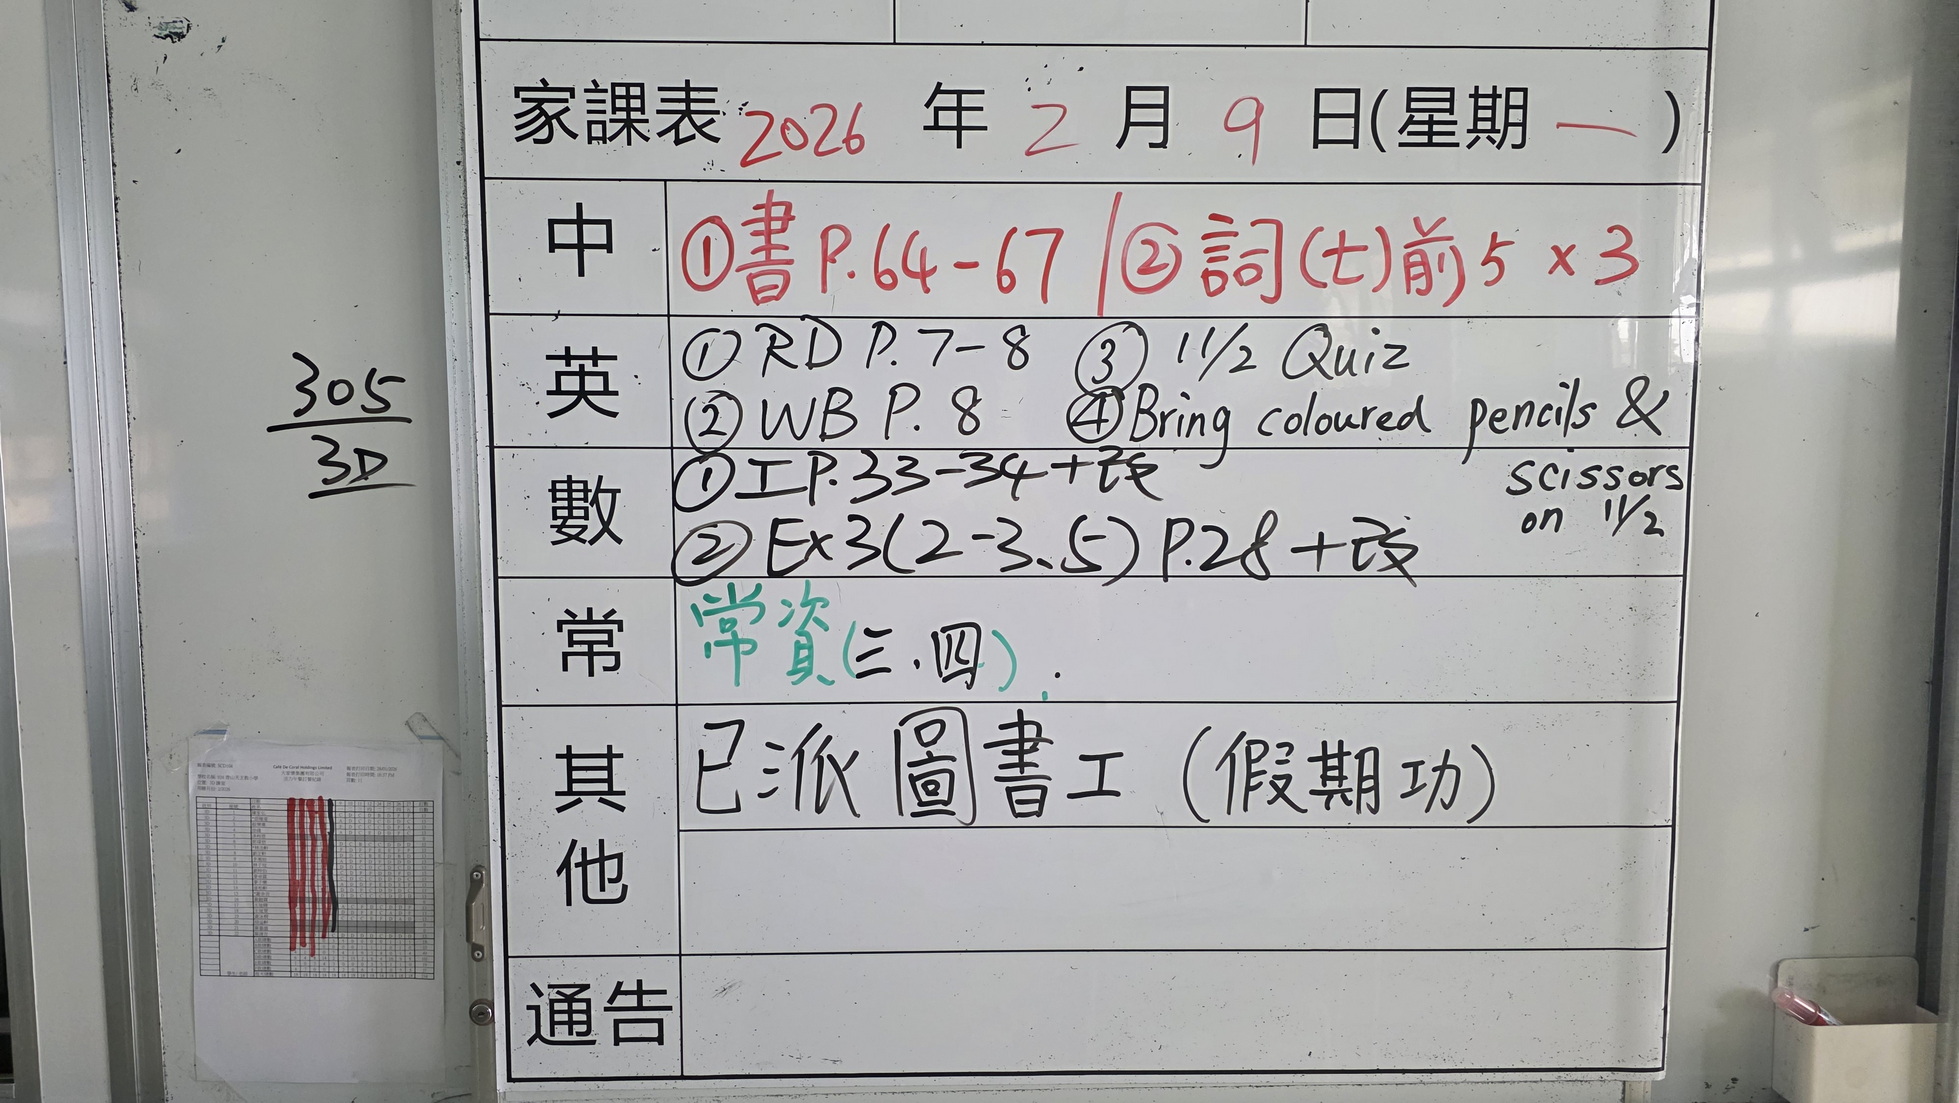 家課表 2026 年 2 月 9 日(星期 一 )
中
①書 P.64-67 / ② 詞(七)前5 × 3
英
① RD P.7-8 ③ 11/2 Quiz
② WB P. 8 ④ Bring coloured pencils &
scissors
on 11/2
數
① 工 P.33-34 + 改
② Ex 3(2-3、5) P.28 + 改
常
常資(三.四).
其他
已派圖書工 (假期功)
通告
305
3D
Café De Coral Holdings Limited